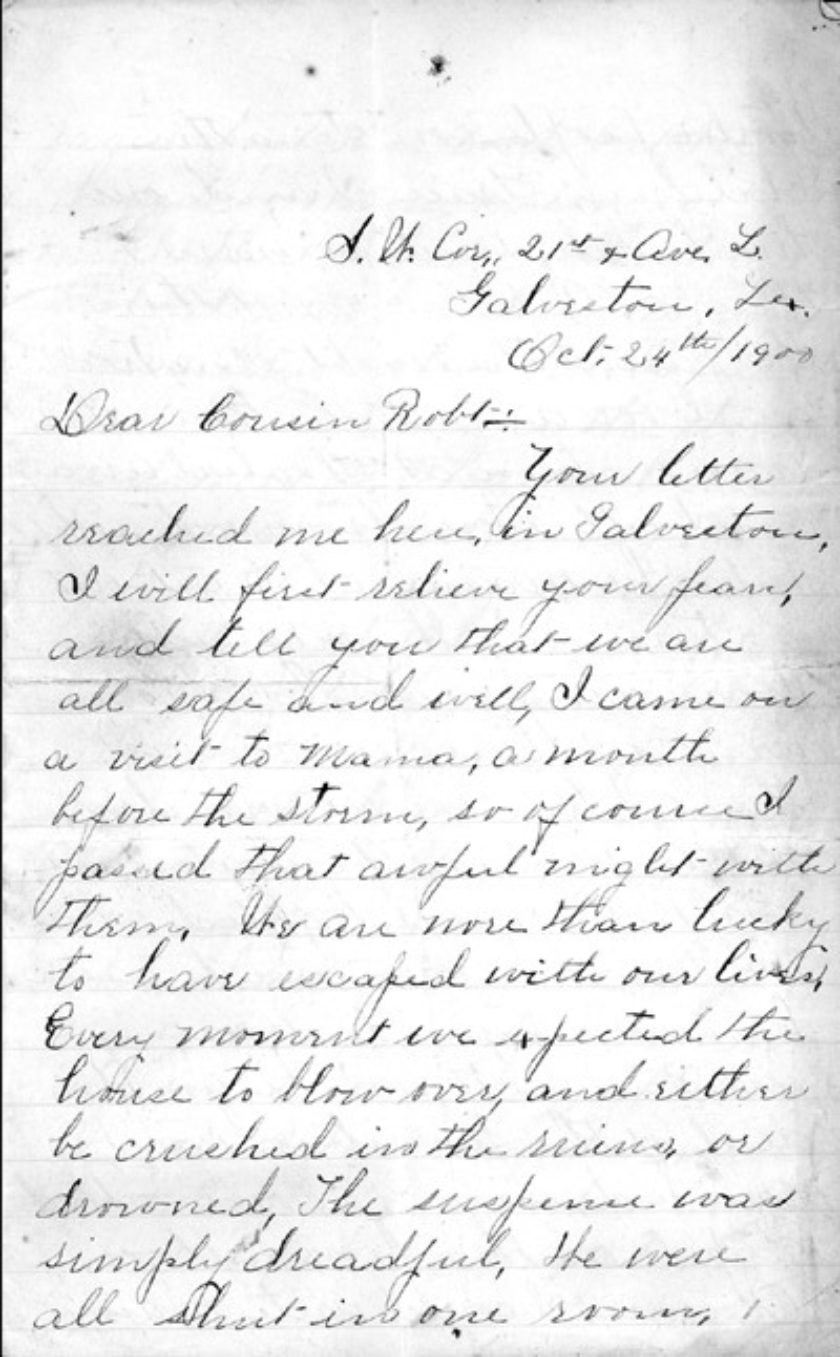 S. W. Cor., 21st & Ave. L.
Galveston, Tex.
Oct. 24th/1900
Dear Cousin Robt:
Your letter
reached me here, in Galveston,
I will first relieve your fears,
and tell you that we are
all safe and well, I came on
a visit to Mama, a month
before the storm, so of course I
passed that awful night with
them. We are more than lucky
to have escaped with our lives,
Every moment we expected the
house to blow over, and either
be crushed in the ruins, or
drowned, The suspense was
simply dreadful, We were
all shut in one room,